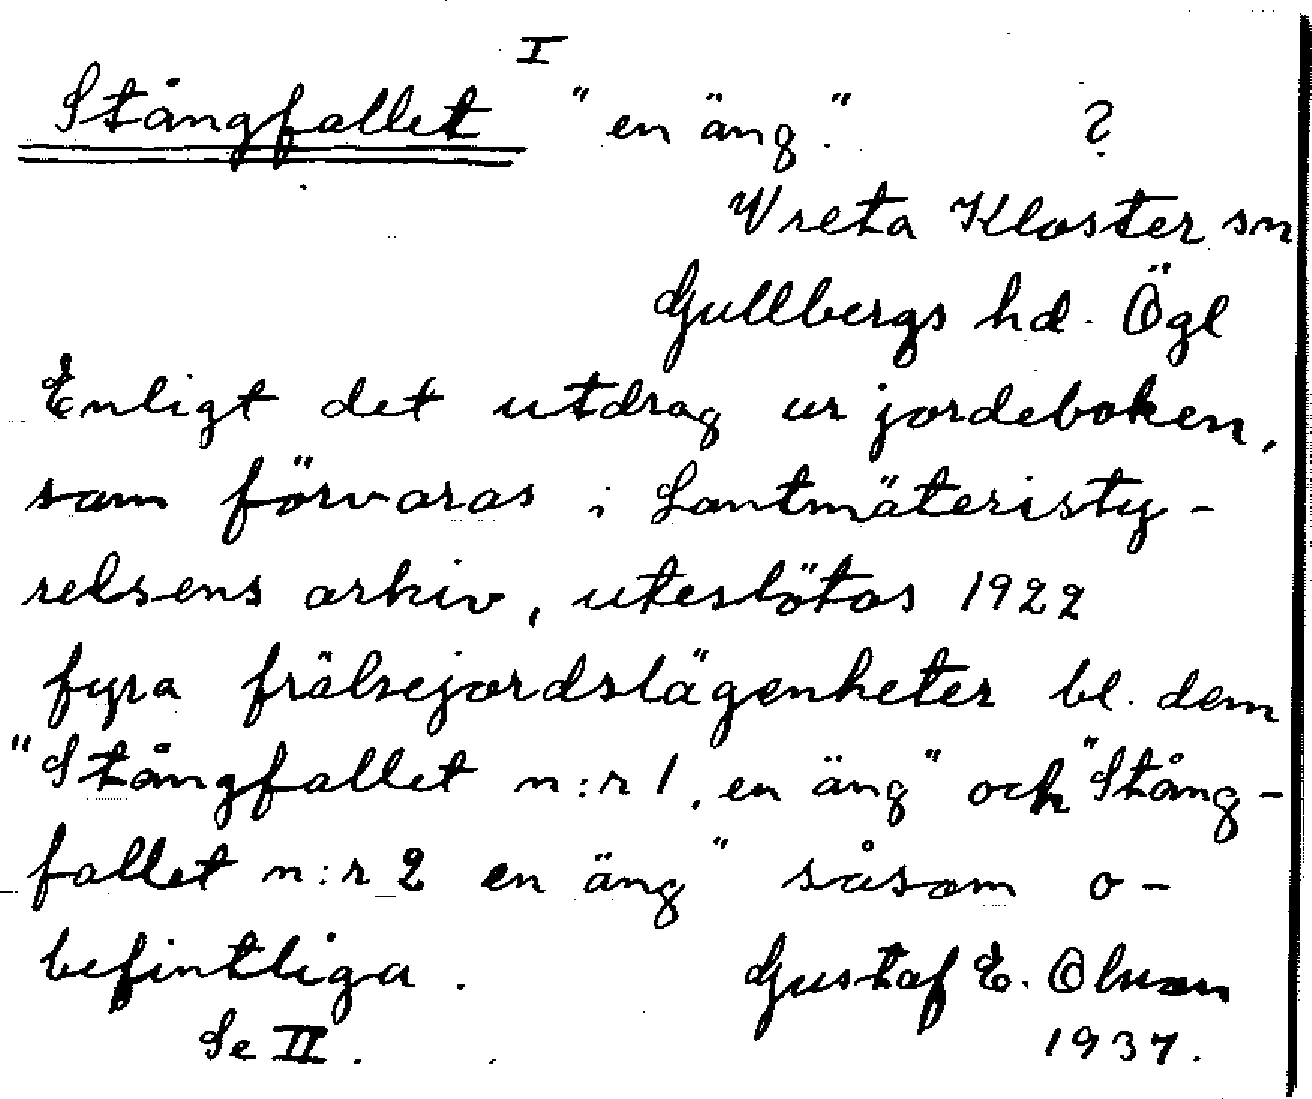 I
Stångfallet "en äng". ?
Vreta Kloster sn
Gullbergs hd. Ögl
Enligt det utdrag ur jordeboken,
som förvaras i Lantmäteristy-
relsens arkiv, uteslötos 1922
fyra frälsejordslägenheter bl. dem
"Stångfallet n:r 1, en äng" och "Stång-
fallet n:r 2 en äng" såsom o-
befintliga.
Gustaf E. Olsson
Se II. 1937.